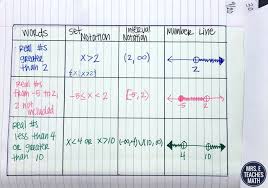 WORDS
Set Notation
Interval Notation
Number Line
Real #s
greater
than 2
x>2
{x|x>2}
(2,∞)
2
Real #s
from -5 to 2,
2 not
included
-5≤x<2
[-5, 2)
-5 2
Real #s
less than 4
or greater
than 10
x<4 or x>10
(-∞,4)∪(10,∞)
4 10
MRS. E
TEACHES
MATH